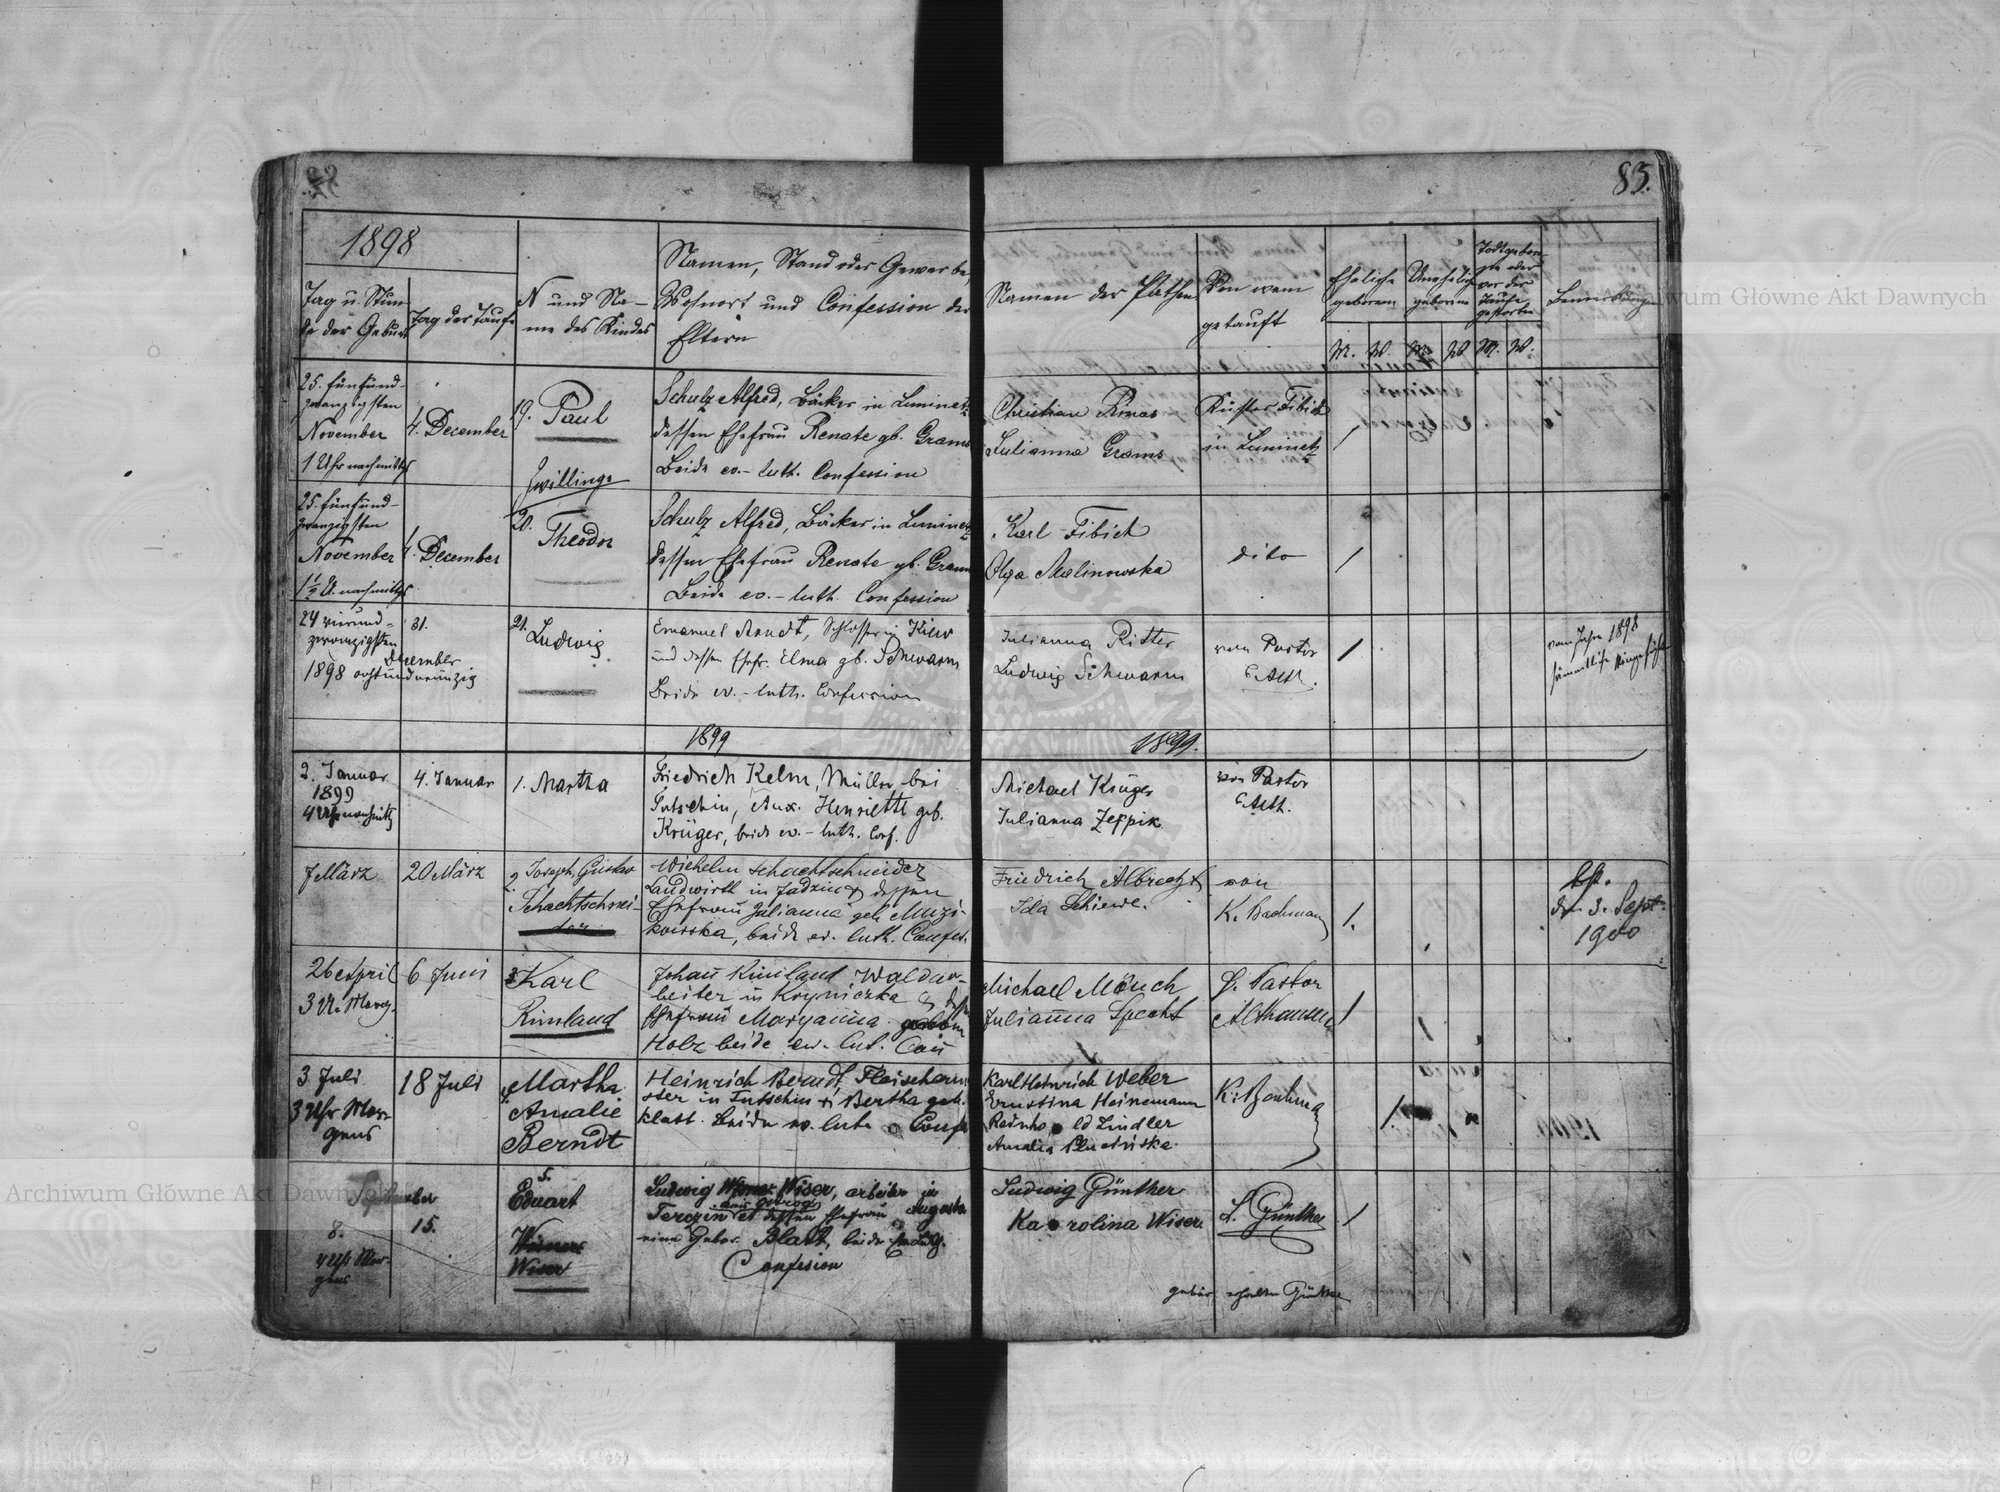 83.
1898
Tag u. Stun-
de der Geburt
Tag der Taufe
N und Na-
me des Kindes
Namen, Stand oder Gewerbe,
Wohnort und Confession der
Eltern
Namen der Pathen
Von wem
getauft
Eheliche
geboren
Unehelich
geboren
Todtgebore-
ne oder
vor der
Taufe
gestorben
Bemerkung
M. W. M. W. M. W.
25. fünfund-
zwanzigsten
November
1 Uhr nachmittgs
4. December
19. Paul
Zwillinge
Schulz Alfred, Bäcker in Luminetz
dessen Ehefrau Renate gb. Grams
Beide ev.-luth. Confession
Christian Primas
Julianna Grams
Küster Fibich
in Luminetz
1
25. fünfund-
zwanzigsten
November
1½ U. nachmittgs
4. December
20. Theodor
Schulz Alfred, Bäcker in Luminetz
dessen Ehefrau Renate gb. Grams
Beide ev.-luth. Confession
Karl Fibich
Olga Malinowska
dito
1
24 vierund-
zwanzigsten
December
1898 achtundneunzig
31.
21. Ludwig
Emanuel Arndt, Schlosser in Kiew
und dessen Ehefr. Elma gb. Schwarm
Beide ev.-luth. Confession
Julianna Ritter
Ludwig Schwarm
vom Pastor
1
vom Jahre 1898
sämmtliche
1899
1899.
2. Januar
1899
4 Uhr nachmitts
4. Januar
1. Martha
Friedrich Kelm, Müller bei
Tutschin, Aux. Henriette geb.
Krüger, beide ev.-luth. Conf.
Michael Krüger
Julianna Zeppik
von Pastor
7 März
20 März
2. Joseph, Gustav
Schachtschnei-
der
Wilhelm Schachtschneider
Landwirth in
Ehefrau Julianna geb. Muzi-
kowska, beide ev. luth. Confes.
Friedrich Albrecht
Ida Schiewe.
von
K. Bachmann
1.
den 3. Sept.
1900
26 April
3 U. Morg.
6 Juni
3 Karl
Rimland
Johan Rimland Waldar-
beiter in Kryniczka
Ehefrau Maryanna
Holz beide ev. lut. Con
Michael Mönch
Julianna Specht
P. Pastor
Althausen
1
3 Juli
3 Uhr Mor-
gens
18 Juli
4. Martha
Amalie
Berndt
Heinrich Berndt, Fleischerm
ster in Tutschin & Bertha geb.
Klatt. Beide ev. luth. Conf.
Karl Heinrich Weber
Ernstina Heinemann
Reinhold Lindler
Amalia
K. Bachman
1.
September
8.
4 Uhr Mor-
gens
15.
5.
Eduart
Wiser
Ludwig Wiser, arbeiter in
Terezen et dessen Ehefrau Augusta
eine Gebor. Blatt, beide
Confesion
Ludwig Günther
Karolina Wiser
L. Günther
1
Archiwum Główne Akt Dawnych
Archiwum Główne Akt Dawnych